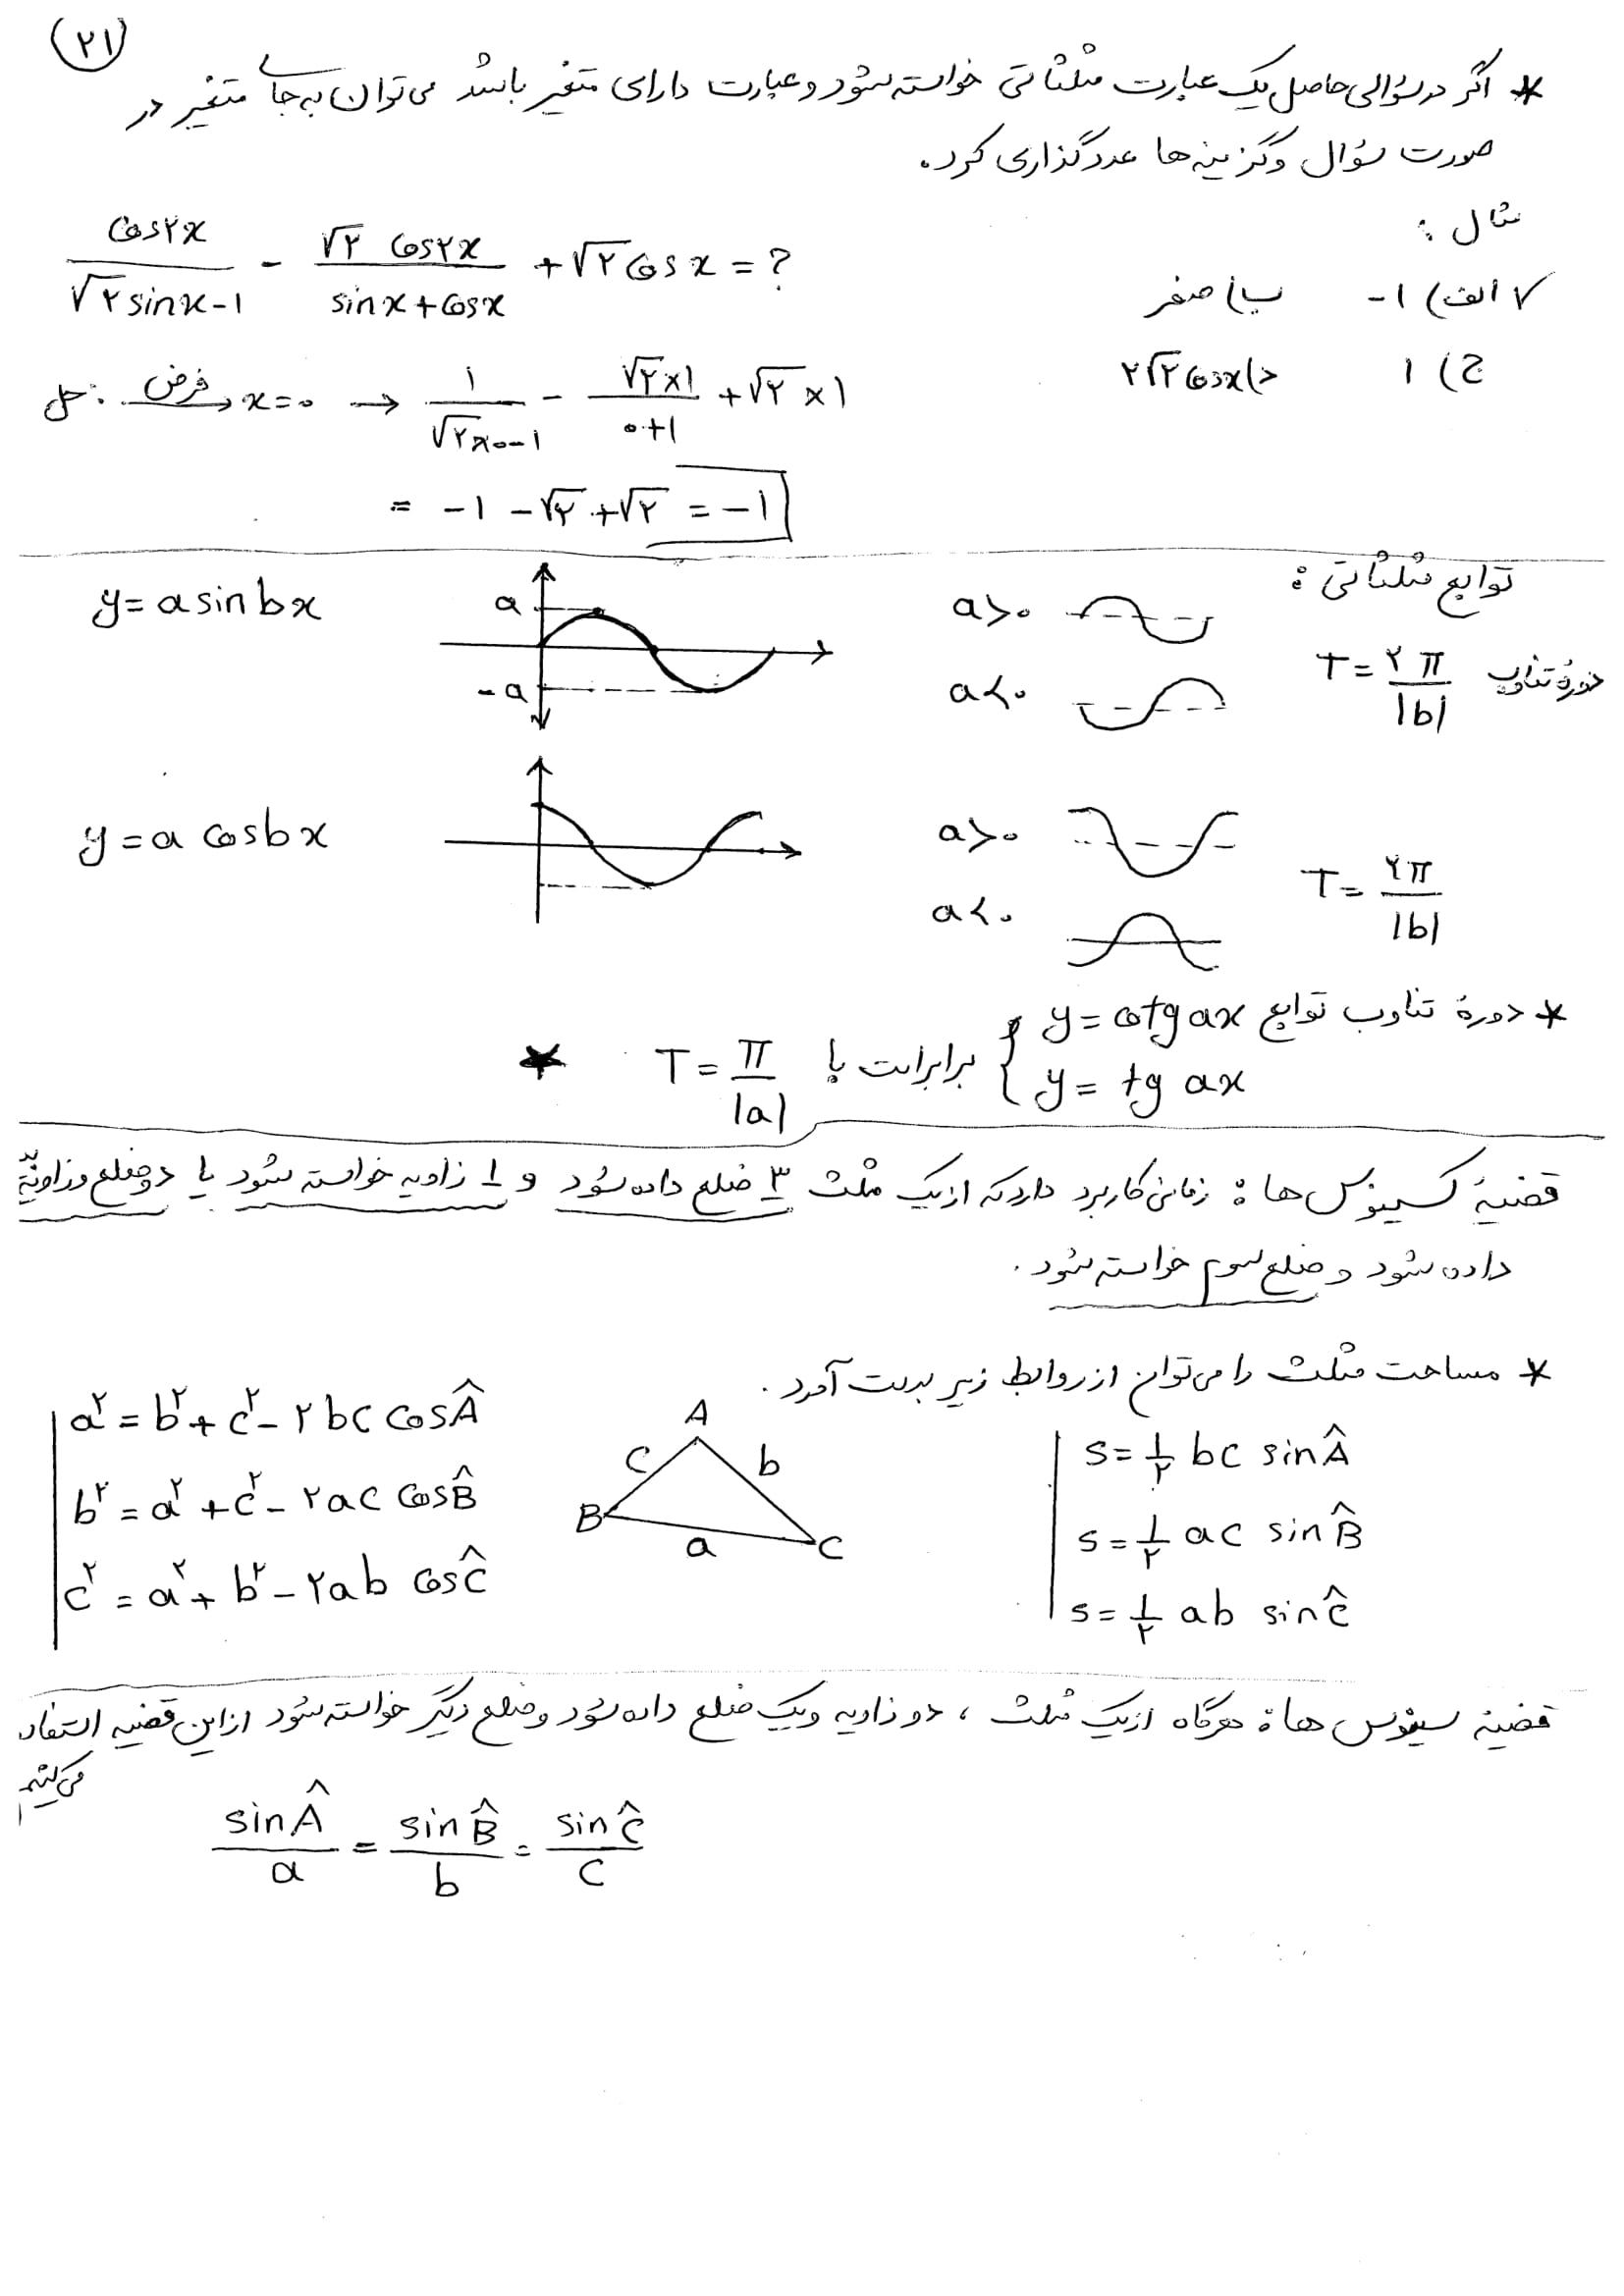 (۲۱)
* اگر در سؤالی حاصل یک عبارت مثلثاتی خواسته شود و عبارت دارای متغیر باشد می‌توان به جای متغیر در
صورت سؤال و گزینه‌ها عددگذاری کرد.
مثال :
cos۲x / (√۲ sinx-۱) - √۲ cos۲x / (sinx+cosx) + √۲ cosx = ?
✓ الف) -۱   ب) صفر
ج) ۱   د) ۲√۲ cosx
حل: فرض x=۰ → ۱ / (√۲×۰-۱) - √۲×۱ / (۰+۱) + √۲×۱
= -۱ - √۲ + √۲ = -۱
توابع مثلثاتی :
y = a sin bx
a
-a
a>۰
a<۰
دورهٔ تناوب T = ۲π / |b|
y = a cos bx
a>۰
a<۰
T = ۲π / |b|
* دورهٔ تناوب توابع { y = cotg ax
y = tg ax
برابر است با T = π / |a| *
قضیهٔ کسینوس ها : زمانی کاربرد دارد که از یک مثلث ۳ ضلع داده شود و ۱ زاویه خواسته شود یا دو ضلع و زاویهٔ بین
داده شود و ضلع سوم خواسته شود.
* مساحت مثلث را می‌توان از روابط زیر بدست آورد.
a² = b² + c² - ۲bc cosÂ
b² = a² + c² - ۲ac cosB̂
c² = a² + b² - ۲ab cosĈ
A
c b
B
a C
s = ½ bc sinÂ
s = ½ ac sinB̂
s = ½ ab sinĈ
قضیهٔ سینوس ها : هرگاه از یک مثلث ، دو زاویه و یک ضلع داده شود و ضلع دیگر خواسته شود از این قضیه استفاده
می‌کنیم
sinÂ / a = sinB̂ / b = sinĈ / c